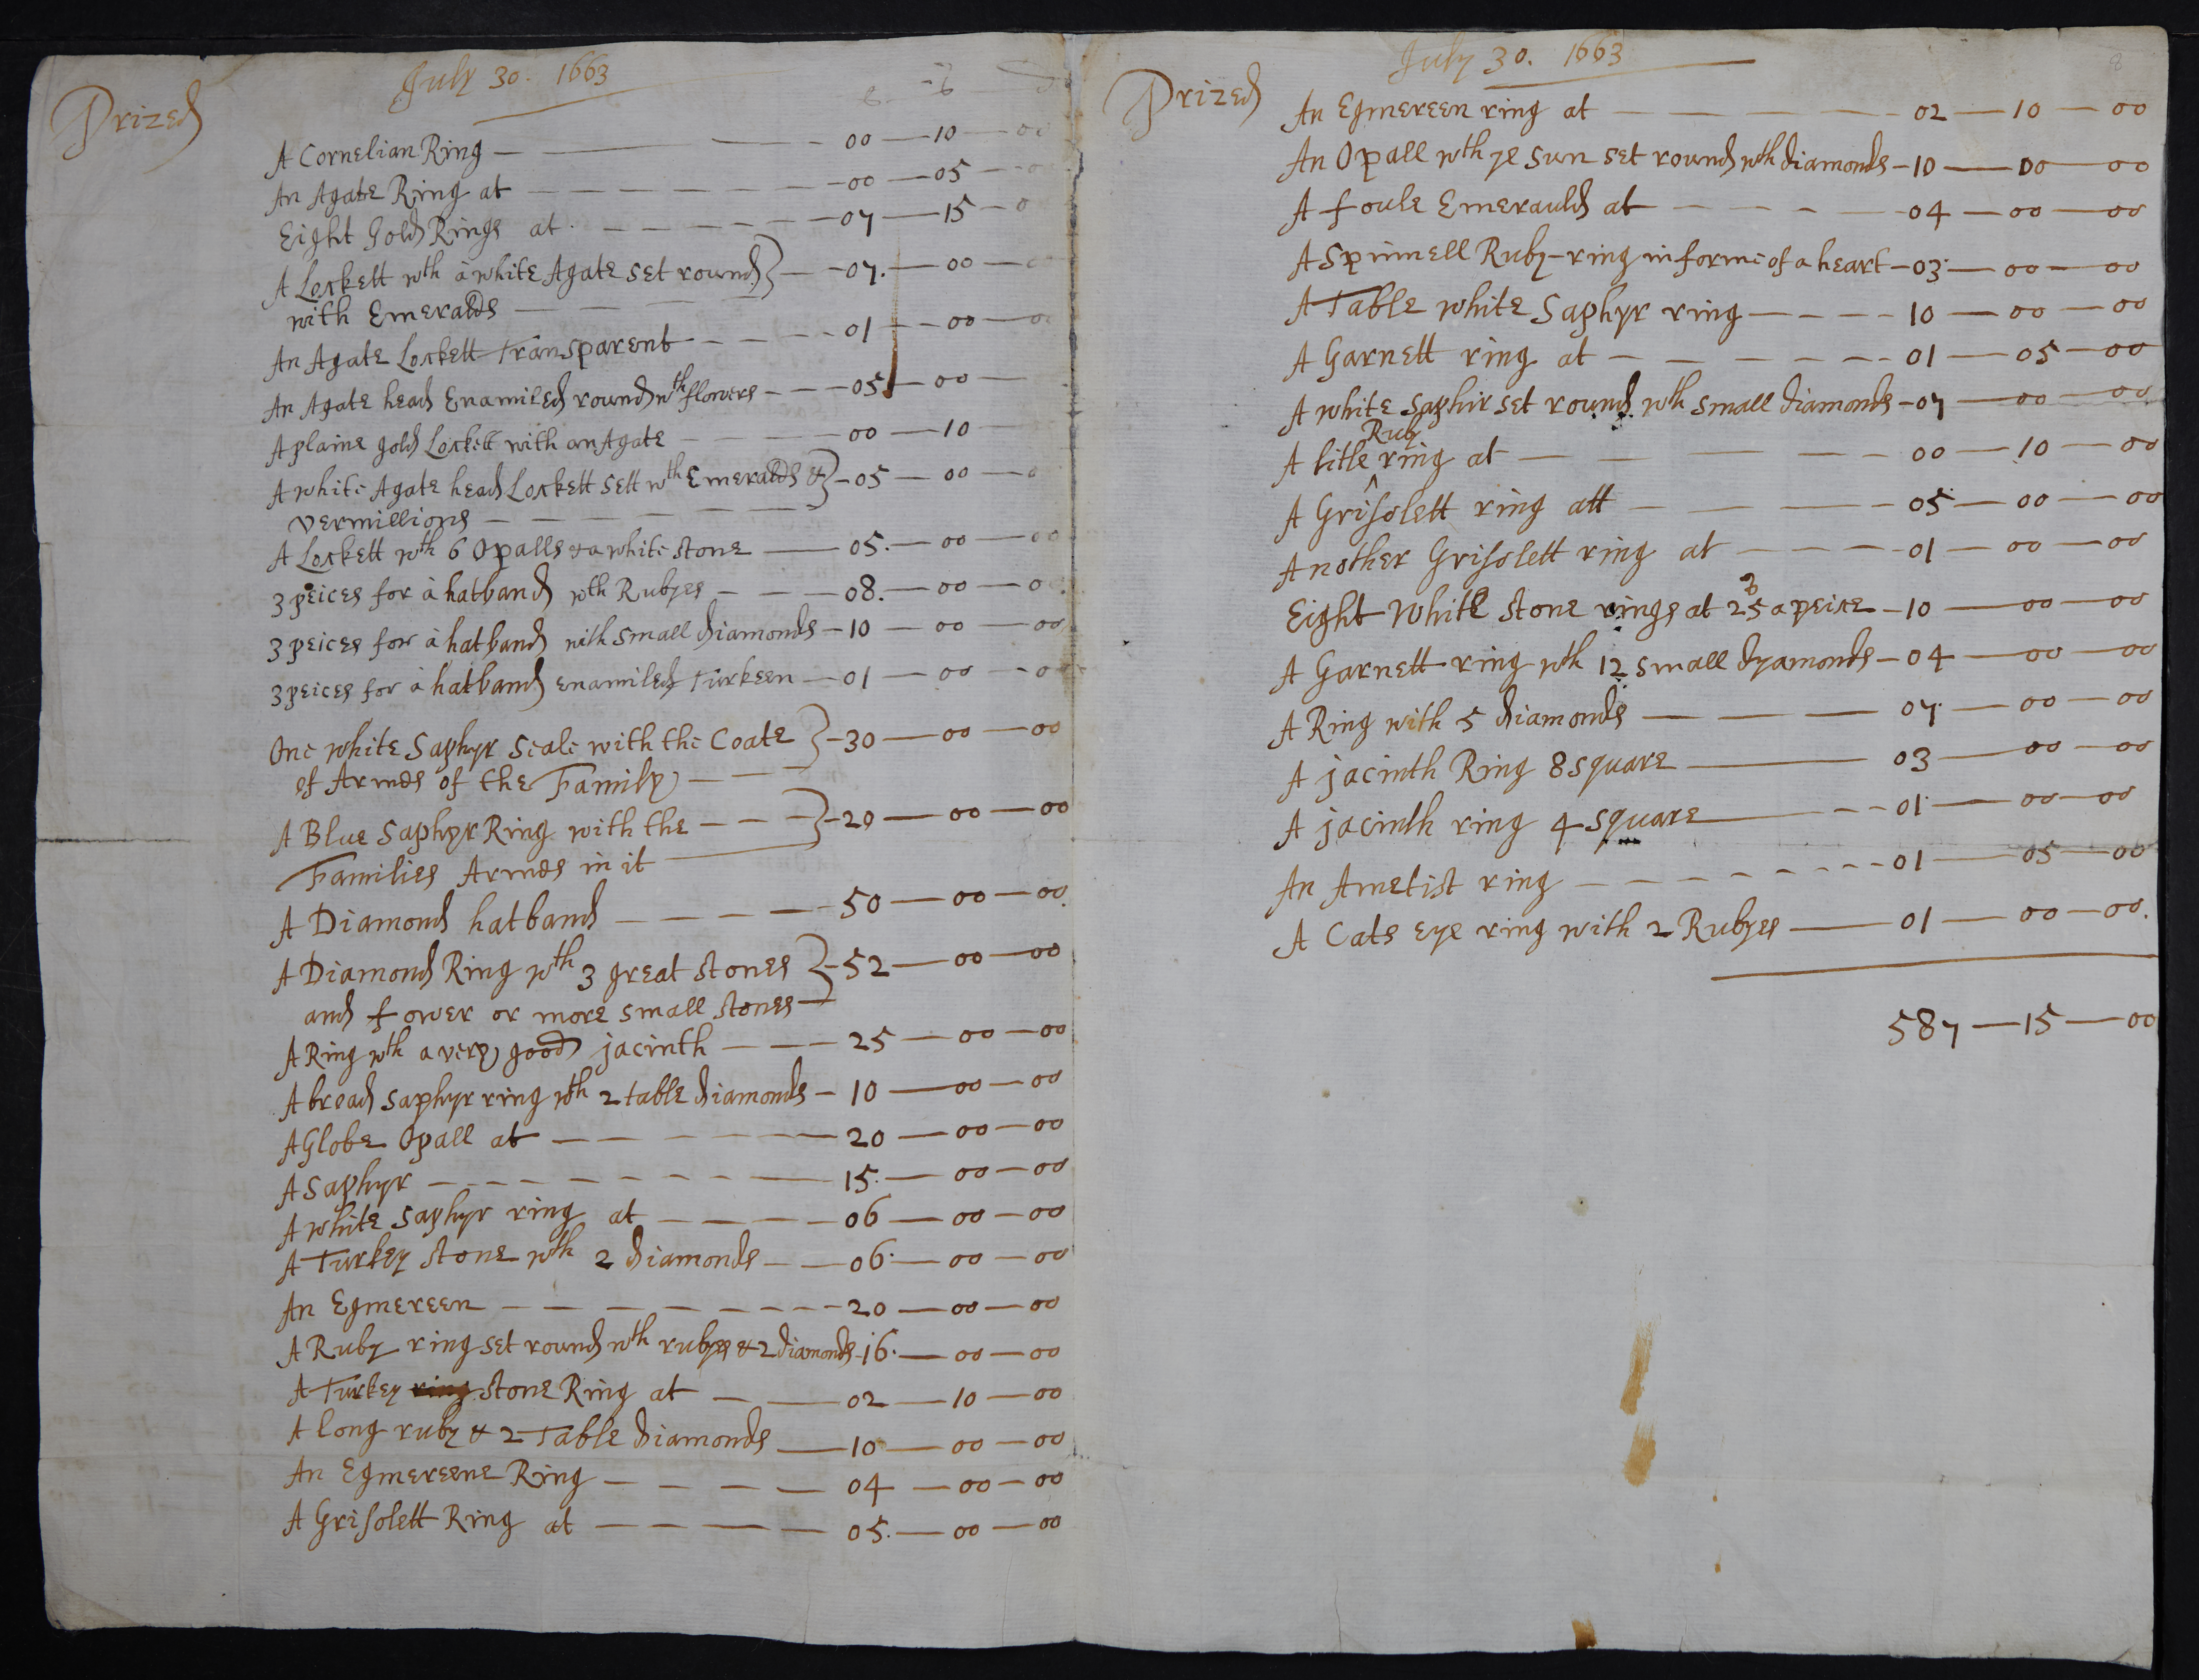 July 30. 1663
Prized
A Cornelian Ring — 00 — 10 — 00
An Agate Ring at — 00 — 05 — 0
Eight Gold Rings at — 07 — 15 — 0
A Lockett wth à white Agate set round } — 07. — 00 — 0
with Emeralds
An Agate Lockett Transparent — 01 — 00 — 0
An Agate head Enamiled round wth flowers — 05 — 00 —
A plaine gold Lockett with an Agate — 00 — 10 —
A white Agate head Lockett sett wth Emeralds & } — 05 — 00 — 0
vermillions
A Lockett wth 6 Opalls & a white stone — 05. — 00 — 00
3 peices for à hatband wth Rubyes — 08. — 00 — 00
3 peices for à hatband with small diamonds — 10 — 00 — 00
3 peices for à hatband enamiled Turkeen — 01 — 00 — 00
One white Saphyr Seale with the Coate } — 30 — 00 — 00
of Armes of the Family
A Blue Saphyr Ring with the } — 20 — 00 — 00
Families Armes in it
A Diamond hatband — 50 — 00 — 00
A Diamond Ring wth 3 great stones } — 52 — 00 — 00
and fower or more small stones
A Ring wth a very good jacinth — 25 — 00 — 00
A bread saphyr ring wth 2 table diamonds — 10 — 00 — 00
A Globe Opall at — 20 — 00 — 00
A Saphyr — 15. — 00 — 00
A white Saphyr ring at — 06 — 00 — 00
A Turkey stone wth 2 diamonds — 06. — 00 — 00
An Egmereen — 20 — 00 — 00
A Ruby ring set round wth rubyes & 2 diamonds — 16. — 00 — 00
A Turkey ring stone Ring at — 02 — 10 — 00
A long ruby & 2 Table diamonds — 10 — 00 — 00
An Egmereene Ring — 04 — 00 — 00
A Grisolett Ring at — 05. — 00 — 00
8
July 30. 1663
Prized
An Egmereen ring at — 02 — 10 — 00
An Opall wth ye sun set round wth diamonds — 10 — 00 — 00
A foule Emerauld at — 04 — 00 — 00
A Spinnell Ruby-ring in forme of a heart — 03 — 00 — 00
A Table white Saphyr ring — 10 — 00 — 00
A Garnett ring at — 01 — 05 — 00
A white Saphir set round wth small diamonds — 07 — 00 — 00
Ruby
A litle ^ ring at — 00 — 10 — 00
A Grisolett ring att — 05 — 00 — 00
Another Grisolett ring at — 01 — 00 — 00
Eight White stone rings at 25s a peice — 10 — 00 — 00
A Garnett ring wth 12 small dyamonds — 04 — 00 — 00
A Ring with 5 diamonds — 07 — 00 — 00
A jacinth Ring 8 square — 03 — 00 — 00
A jacinth ring 4 square — 01 — 00 — 00
An Ametist ring — 01 — 05 — 00
A Cats eye ring with 2 Rubyes — 01 — 00 — 00.
587 — 15 — 00